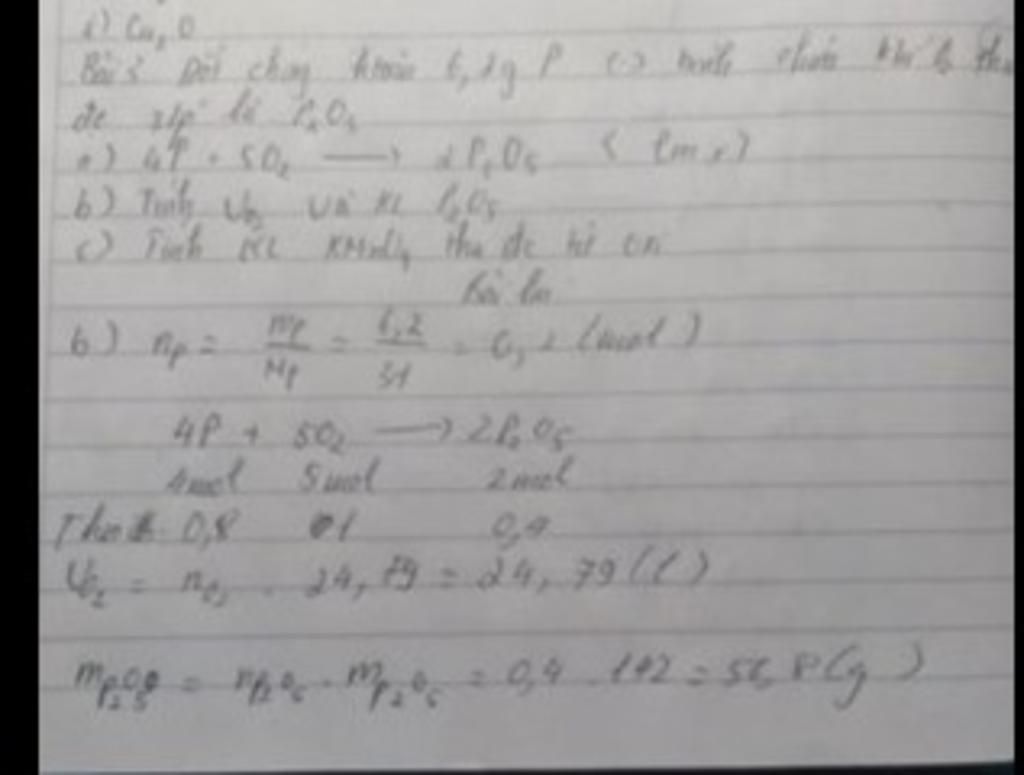 Cu₂O
Bài 3 Đốt cháy hoàn 6,2g P bình chứa khí
đc s/p là P₂O₅
a) 4P + 5O₂ → 2P₂O₅
b) Tính VO₂ và KL P₂O₅
c) Tính KL KMnO₄
Bài làm
b) nₚ = mₚ/Mₚ = 6,2/31 = 0,2 (mol)
4P + 5O₂ → 2P₂O₅
4mol 5mol 2mol
Theo 0,8 1 0,4
VO₂ = nO₂ . 24,79 = 24,79 (l)
mP₂O₅ = nP₂O₅ . mP₂O₅ = 0,4 . 142 = 56,8 (g)